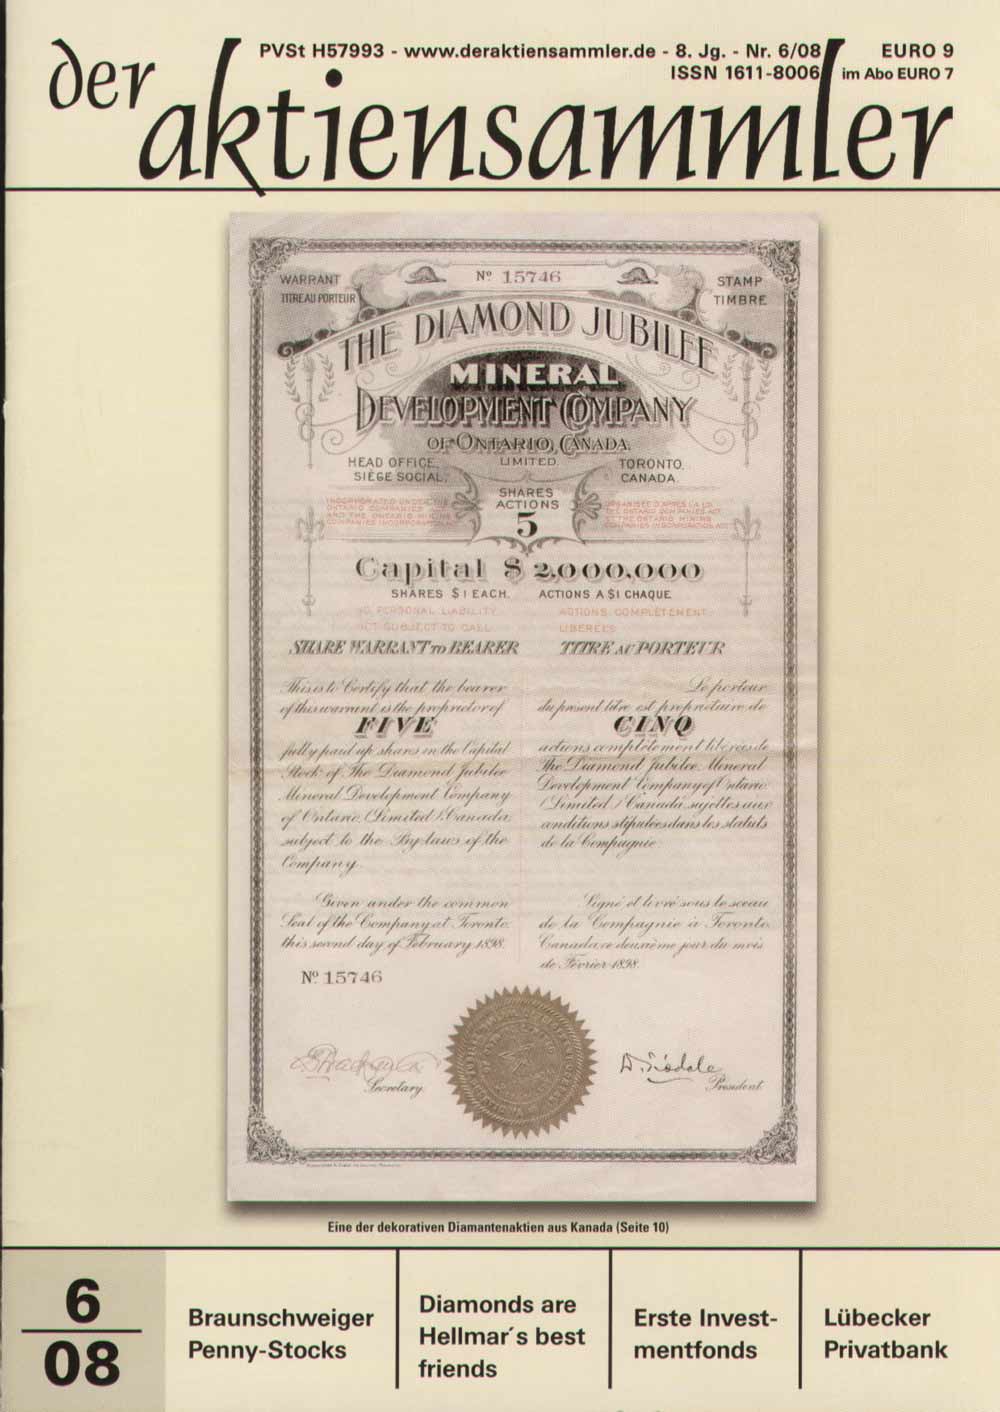 PVSt H57993 - www.deraktiensammler.de - 8. Jg. - Nr. 6/08
ISSN 1611-8006
EURO 9
im Abo EURO 7
der
aktiensammler
WARRANT
TITRE AU PORTEUR
Nº 15746
STAMP
TIMBRE
THE DIAMOND JUBILEE
MINERAL
DEVELOPMENT COMPANY
OF ONTARIO, CANADA.
LIMITED
HEAD OFFICE,
SIÈGE SOCIAL,
TORONTO,
CANADA
SHARES
ACTIONS
5
INCORPORATED UNDER THE
ONTARIO COMPANIES
AND THE ONTARIO MINING
COMPANIES INCORPORATION
ORGANISÉE D'APRES LA LOI
THE ONTARIO COMPANIES ACT
ET THE ONTARIO MINING
COMPANIES INCORPORATION ACT
Capital $ 2,000,000
SHARES $1 EACH.
ACTIONS A $1 CHAQUE
NO PERSONAL LIABILITY
NOT SUBJECT TO CALL
ACTIONS COMPLÈTEMENT
LIBÉRÉES
SHARE WARRANT TO BEARER
This is to Certify that the bearer
of this warrant is the proprietor of
FIVE
fully paid up shares in the Capital
Stock of The Diamond Jubilee
Mineral Development Company
of Ontario, (Limited) Canada,
subject to the By-laws of the
Company.
Given under the common
Seal of the Company at Toronto,
this second day of February 1898.
TITRE AU PORTEUR
Le porteur
du présent titre est propriétaire de
CINQ
actions complètement libérées de
The Diamond Jubilee Mineral
Development Company of Ontario
(Limited) Canada, sujettes aux
conditions stipulées dans les statuts
de la Compagnie.
Signé et livré sous le sceau
de la Compagnie à Toronto,
Canada, ce deuxième jour du mois
de Février 1898.
Nº 15746
Secretary.
President.
Eine der dekorativen Diamantenaktien aus Kanada (Seite 10)
6
08
Braunschweiger
Penny-Stocks
Diamonds are
Hellmar´s best
friends
Erste Invest-
mentfonds
Lübecker
Privatbank